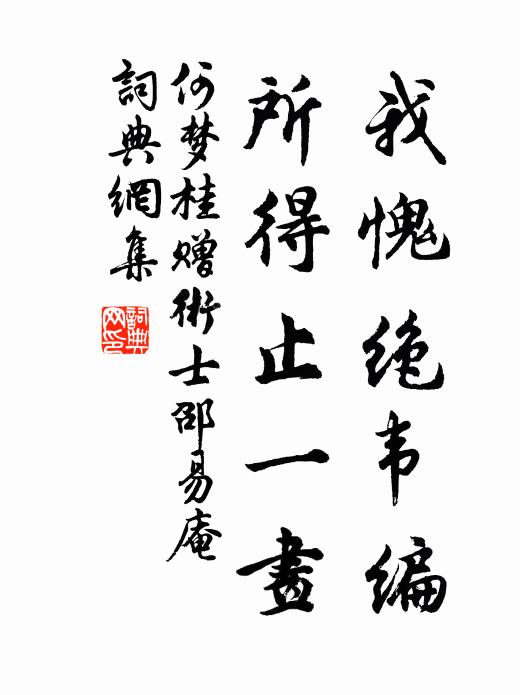 我愧绝韦编
所得止一畫
何梦桂赠術士邵易庵
詞典網集
詞典网印